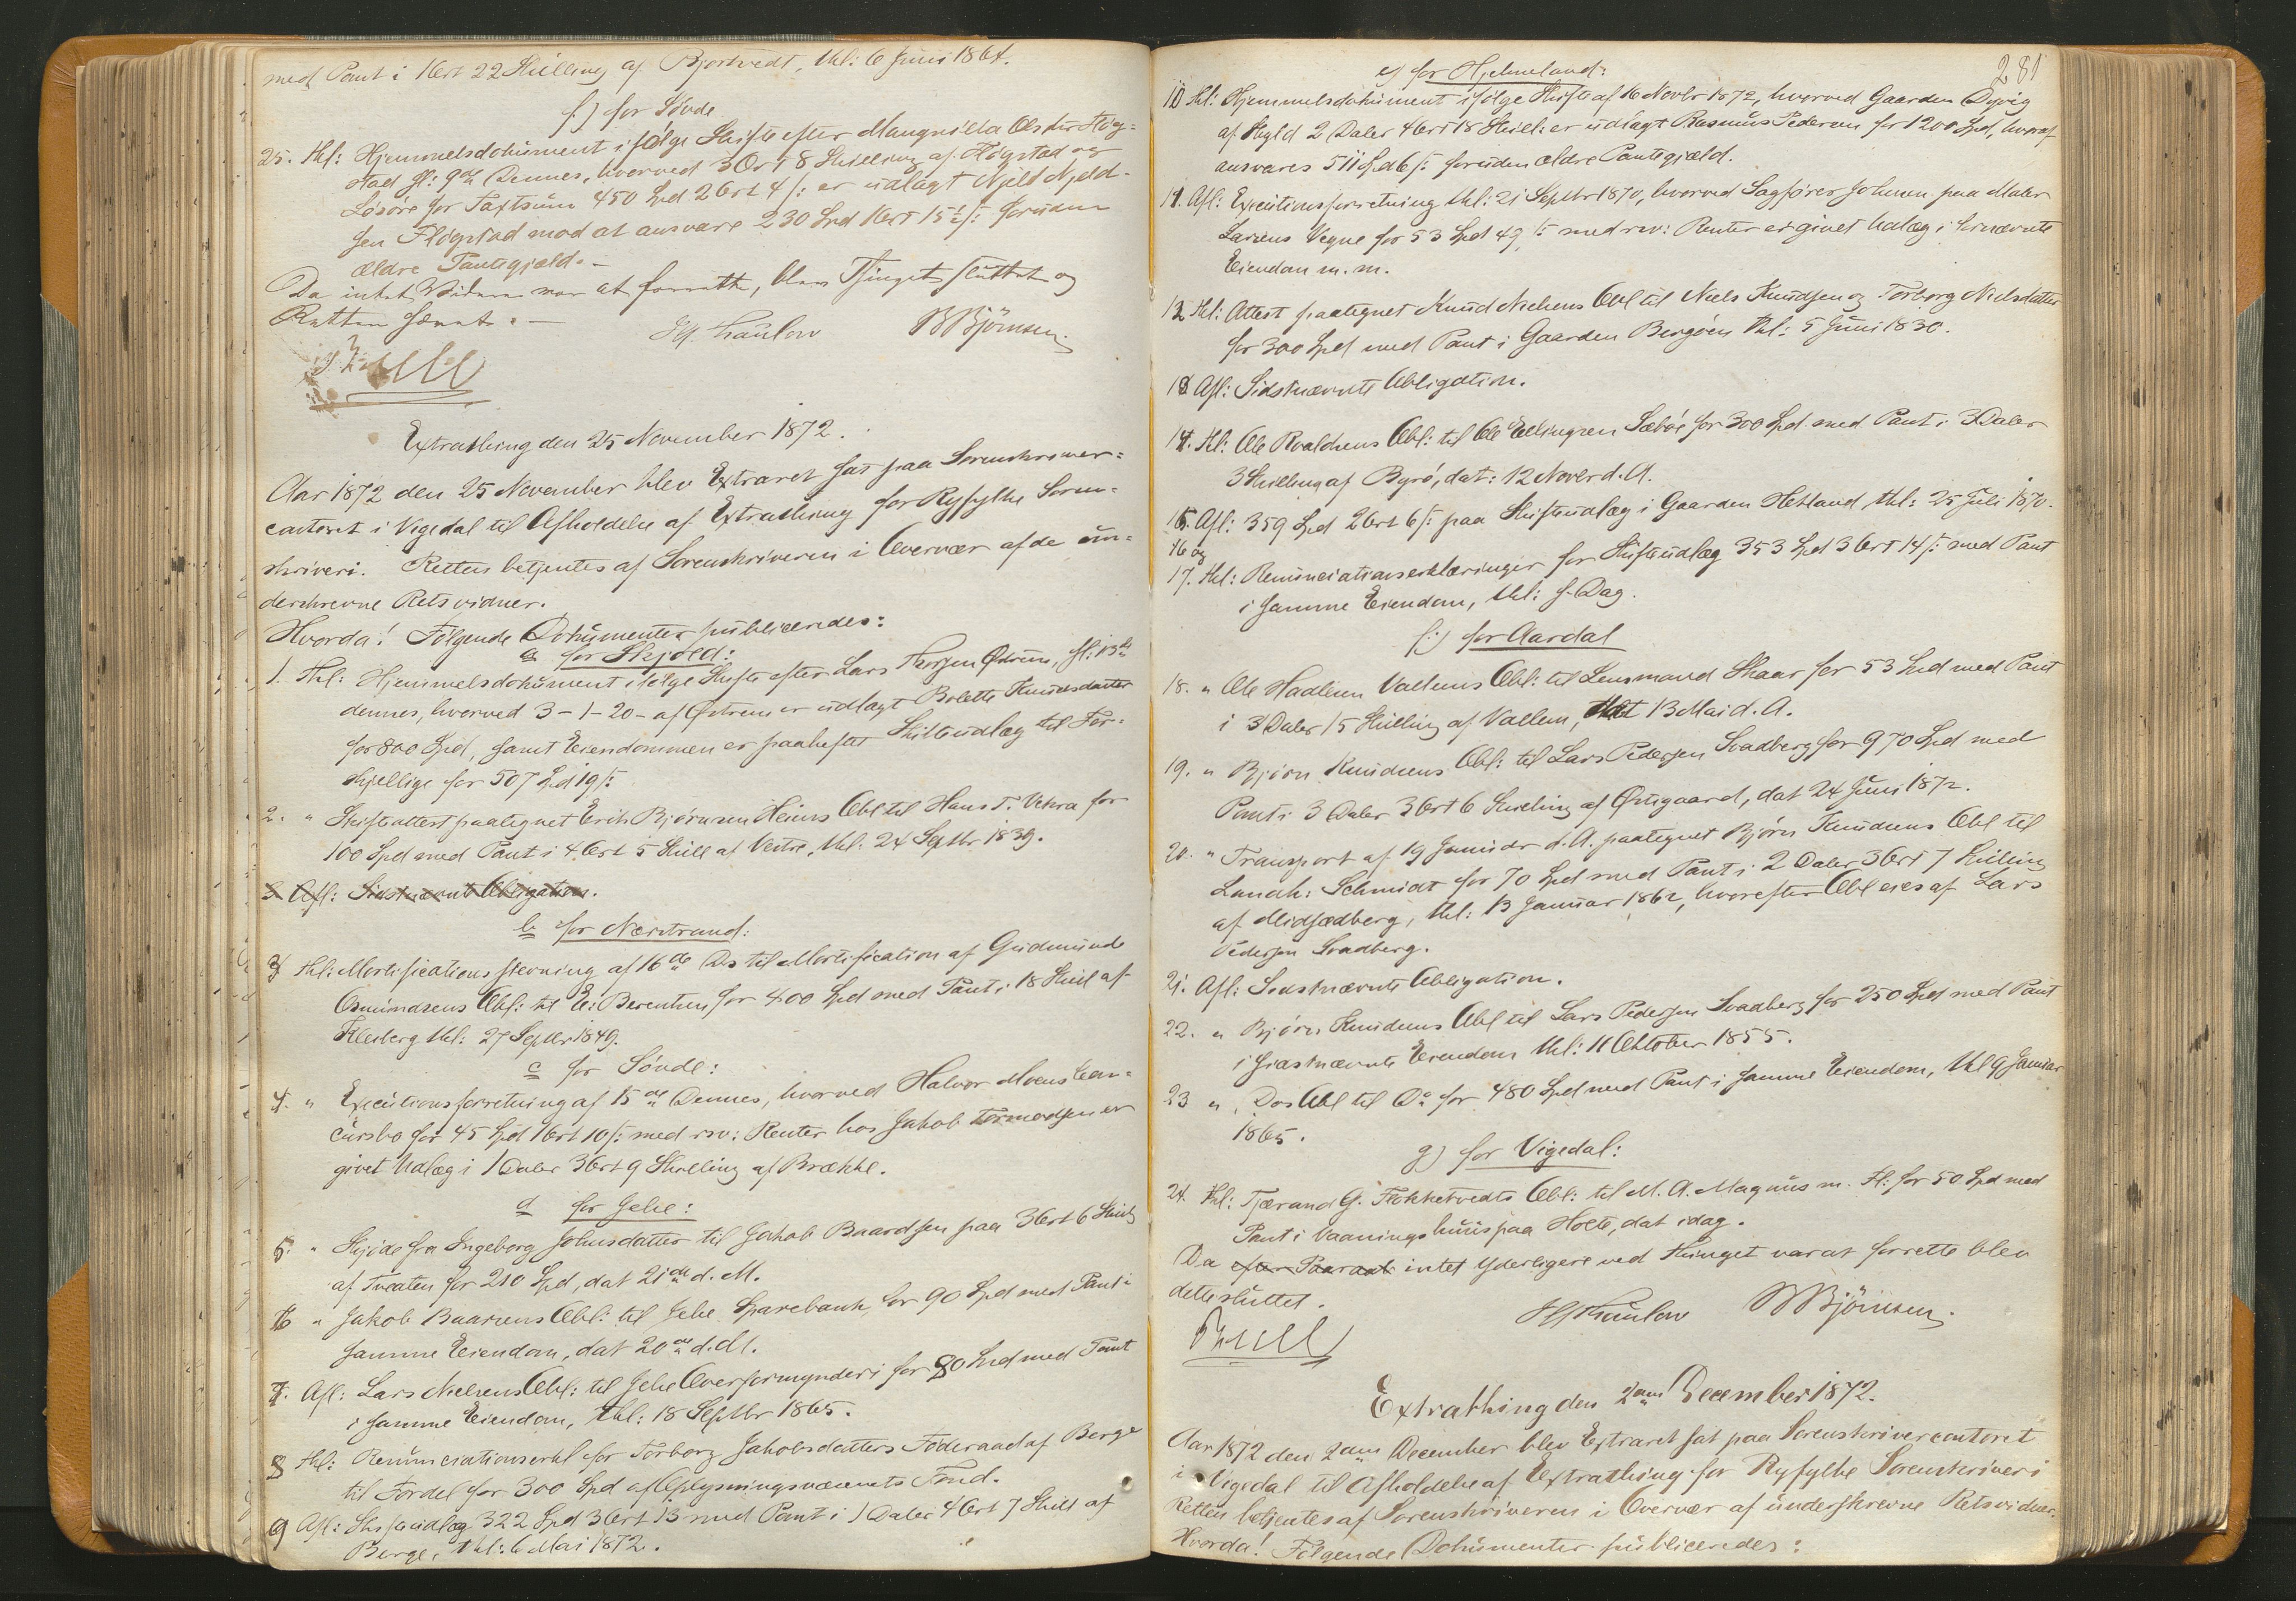 med Pant i 1 Ort 22 Skilling af Bjortvedt, thl: 6 Juni 1864.
f) for Søvde
25. thl: Hjemmelsdokument ifølge Skifte efter Mangnilda Olsdtr Høg-
stad fl: 9de Dennes, hvorved 3 Ort 8 Skilling af Høgstad og
Løsøre for Taxtsum 450 Spd 2 Ort 4 s: er udlagt Njeld Njeld-
sen Høgstad mod at ansvare 230 Spd 1 Ort 15½ s: foruden
ældre Pantegjæld. -
Da intet Videre var at forrette, blev Thinget sluttet og
Retten hævet. -
Hf. Thaulow BBjörnsen.
Extrathing den 25 November 1872.
Aar 1872 den 25 November blev Extraret sat paa Sorenskriver-
contoret i Vigedal til Afholdelse af Extrathing for Ryfylke Soren-
skriveri. Retten betjentes af Sorenskriveren i Overvær af de un-
derskrevne Retsvidner.
Hvorda! Følgende Dokumenter publiceredes:
a for Skjold:
1. Thl: Hjemmelsdokument ifølge Skifte efter Lars Thorsen Østrem, fl: 13de
dennes, hvorved 3-1-20- af Østrem er udlagt Bolette Knudsdatter
for 800 Spd, samt Eiendommen er paaheftet Skifteudlæg til For-
skjellige for 507 Spd 19 s:
2. " Skifteattest paategnet Erik Bjørnsen Heims Obl til Hans T. Vikra for
100 Spd med Pant i 4 Ort 5 Skill af Vestre, thl: 24 Septbr 1839.
3 Afl: Sidstnævnte Obligation.
b for Nærstrand:
3 thl: Mortifications stevning af 16de Ds til Mortification af Gudmund
Osmundsens Obl: til E. Berentsen for 400 Spd med Pant i 18 Skill af
Fleiberg thl: 27 Septbr 1849.
c for Søvde:
4. " Executionsforretning af 15de Dennes, hvorved Halvor Moens Con-
cursbo for 45 Spd 1 Ort 10 s: med rsv: Renter hos Jakob Tormodsen er
givet Udlæg i 1 Daler 3 Ort 9 Skilling af Brække.
d for Jelse:
5. " Skjøde fra Ingeborg Johnsdatter til Jakob Baardsen paa 3 Ort 6 Skill
af Tveaten for 210 Spd, dat 21de d. M.
6 " Jakob Baarsens Obl: til Jelse Sparebank for 90 Spd med Pant i
samme Eiendom, dat 20de d. M.
7. Afl: Lars Nielsens Obl: til Jelse Overformynderi for 80 Spd med Pant
i samme Eiendom, thl: 18 Septbr 1865.
8 thl: Renunciationserkl for Torborg Jakobsdatters Føderaad af Berge
til Fordel for 300 Spd af Oplysningsvæsenets Fond.
9 Afl: Skifteudlæg 322 Spd 3 Ort 13 med Pant i 1 Daler 4 Ort 7 Skill af
Berge, thl: 6 Mai 1872.
281
e) for Hjelmeland:
10 thl: Hjemmelsdokument ifølge Skifte af 16 Novbr 1872, hvorved Gaarden Døvig
af Skyld 2 Daler 4 Ort 18 Skill: er udlagt Rasmus Pedersen for 1200 Spd, hvoraf
ansvares 511 Spd 6 s: foruden ældre Pantegjæld.
11. Afl: Executionsforretning thl: 21 Septbr 1870, hvorved Sagfører Johnsen paa Maler
Larsens Vegne for 53 Spd 49 s: med rsv: Renter er givet Udlæg i fornævnte
Eiendom m. m.
12 thl: Attest paategnet Knud Nielsens Obl til Niels Knudsen og Torborg Nielsdatter
for 300 Spd med Pant i Gaarden Bergøen thl: 5 Juni 1830.
13 Afl: Sidstnævnte Obligation.
14. thl: Ole Roaldsens Obl: til Ole Ellingsen Sæbø for 300 Spd med Pant i 3 Daler
3 Skilling af Byrø, dat: 12 Novbr d. A.
15. Afl: 359 Spd 2 Ort 6 s: paa Skifteudlæg i Gaarden Hetland, thl: 25 Juli 1870.
16 og
17. thl: Renunciationserklæringer for Skifteudlæg 353 Spd 3 Ort 14 s: med Pant
i samme Eiendom, thl: s. Dag.
f) for Aardal
18. " Ole Hadlesen Vallems Obl: til Lensmand Skaar for 53 Spd med Pant
i 3 Daler 15 Skilling af Vallem, dat 13 Mai d. A.
19. " Bjørn Knudsens Obl: til Lars Pedersen Svadberg for 970 Spd med
Pant i 3 Daler 3 Ort 6 Skilling af Østigaard, dat 24 Juni 1872.
20. " Transport af 19 Januar d. A. paategnet Bjørn Knudsens Obl til
Landh: Schmidt for 70 Spd med Pant i 2 Daler 3 Ort 7 Skilling
af Midsædberg, thl: 13 Januar 1862, hvorefter Obl eies af Lars
Pedersen Svadberg.
21. Afl: Sidstnævnte Obligation.
22. " Bjørn Knudsens Obl til Lars Pedersen Svadberg for 250 Spd med Pant
i sidstnævnte Eiendom thl: 11 Oktober 1855.
23 " Ds Obl til Do for 480 Spd med Pant i samme Eiendom, thl 9 Januar
1865.
g) for Vigedal:
24. thl: Tjærand G. Flokketvedts Obl: til M. A. Magnus m. Fl: for 50 Spd med
Pant i Vaaningshuus paa Holte, dat idag.
Da efter Paaraab intet yderligere ved thinget var at forrette blev
dette sluttet.
Hf Thaulow BBjörnsen.
Extrathing den 2den December 1872.
Aar 1872 den 2den December blev Extraret sat paa Sorenskrivercontoret
i Vigedal til Afholdelse af Extrathing for Ryfylke Sorenskriveri
Retten betjentes af Sorenskriveren i Overvær af underskrevne Retsvidner.
Hvorda! Følgende Dokumenter publiceredes: